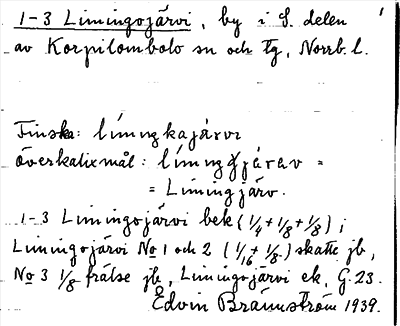 1-3 Limingojärvi, by i S. delen
av Korpilombolo sn och tg, Norrb. l.
Finska: límiŋkajárvi
överkalixmål: límiŋgjárav =
= Limingjärv.
1-3 Limingojärvi bek (1/4 + 1/8 + 1/8);
Limingojärvi No 1 och 2 (1/16 + 1/8) skatte jb,
No 3 1/8 frälse jb, Limingojärvi ek, G. 23.
Edvin Brännström 1939.